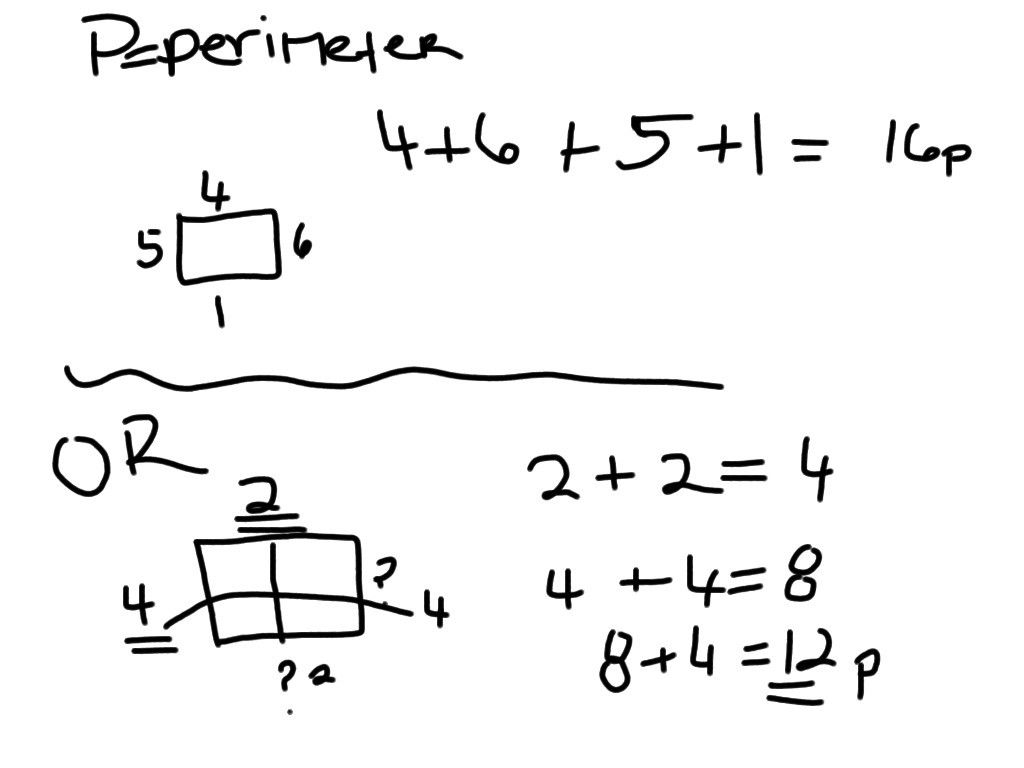 P=perimeter
4+6 + 5+1 = 16p
4
5 6
1
OR
2
2 + 2 = 4
4 ? 4
4 + 4 = 8
? 2
8 + 4 = 12 p